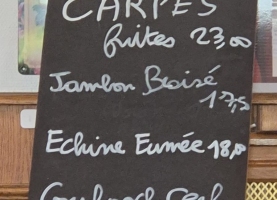 CARPES
frites 23,00
Jambon Braisé
17,5
Echine Fumée 18,0